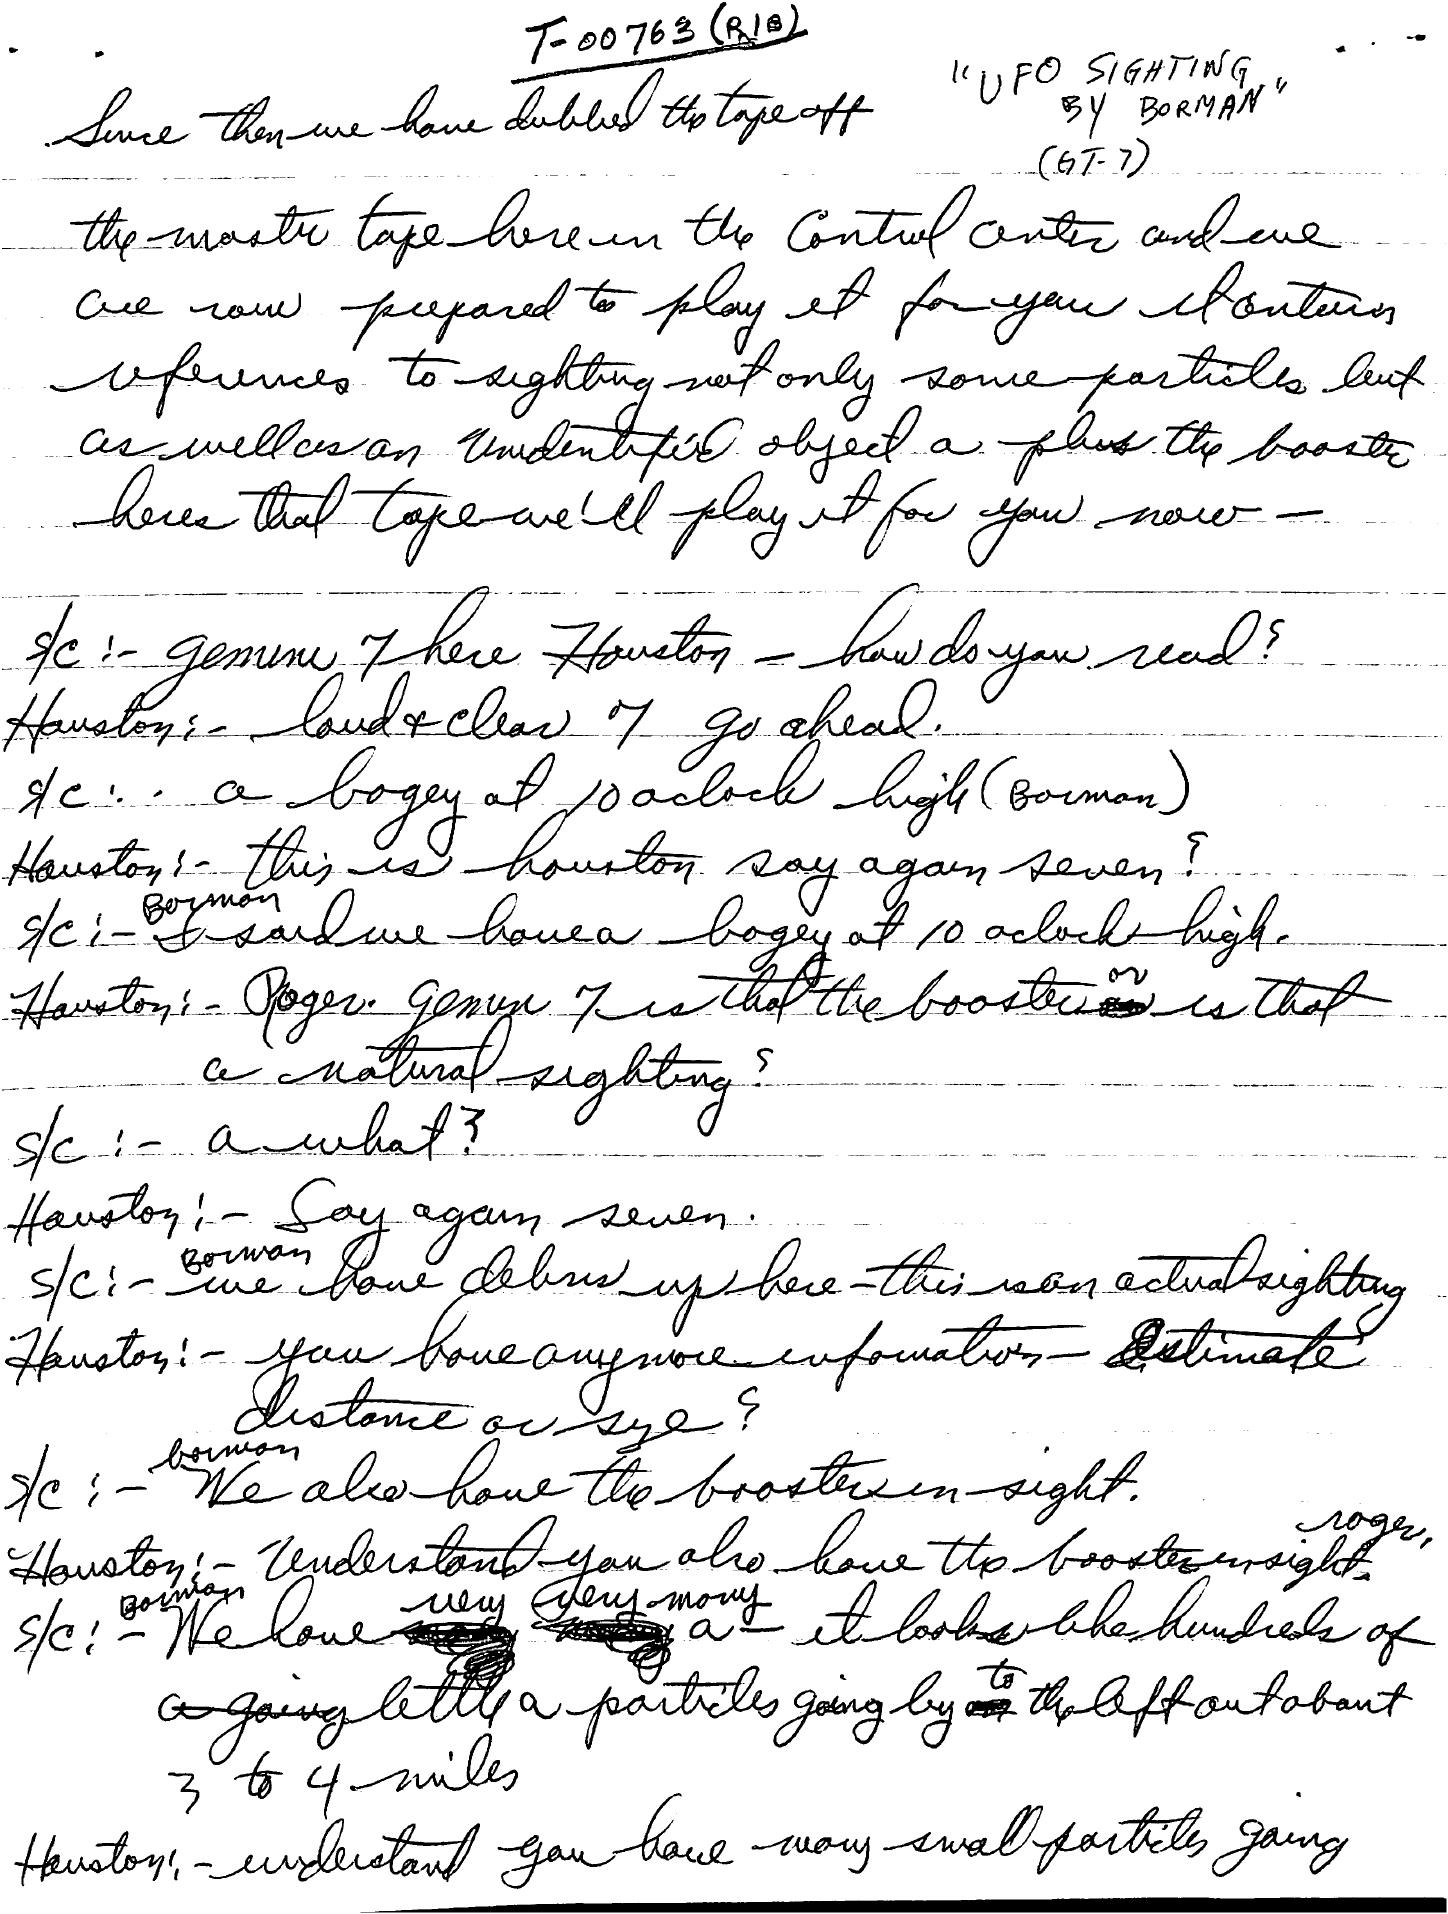 T-00763 (R1B)
"UFO SIGHTING
BY BORMAN"
(GT-7)
Since then we have dubbed the tape off
the master tape here in the Control center and we
are now prepared to play it for you it contains
references to sighting not only some particles but
as well as an unidentified object a plus the booster
heres that tape we'll play it for you now —
S/C :- Gemini 7 here Houston — how do you read?
Houston :- loud & clear 7 go ahead.
S/C : . . a bogey at 10 oclock high (Borman)
Houston :- this is houston say again seven?
Borman
S/C :- I said we have a bogey at 10 oclock high.
Houston :- Roger. Gemini 7 is that the booster or is that
a natural sighting?
S/C :- a what?
Houston :- Say again seven.
Borman
S/C :- we have debris up here — this is an actual sighting
Houston :- you have anymore information — Estimate
distance or size?
borman
S/C :- We also have the booster in sight.
Houston :- Understand you also have the booster in sight. roger.
Borman
S/C :- We have very very many a — it looks like hundreds of
a going little a particles going by to the left out about
3 to 4 miles
Houston :- understand you have many small particles going